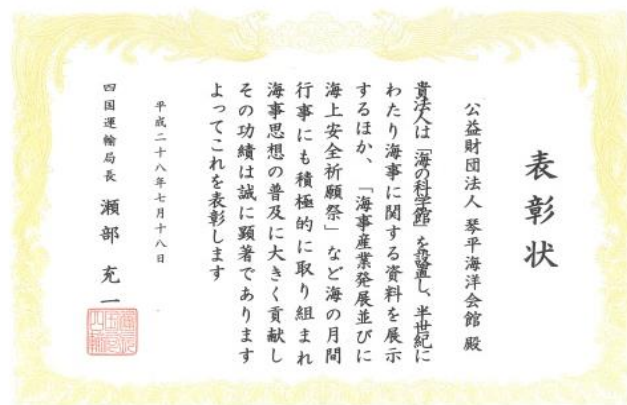 表彰状
公益財団法人 琴平海洋会館 殿
貴法人は「海の科学館」を設置し、半世紀に
わたり海事に関する資料を展示
するほか、「海事産業発展並びに
海上安全祈願祭」など海の月間
行事にも積極的に取り組まれ
海事思想の普及に大きく貢献し
その功績は誠に顕著であります
よってこれを表彰します
平成二十八年七月十八日
四国運輸局長 瀬部 充一